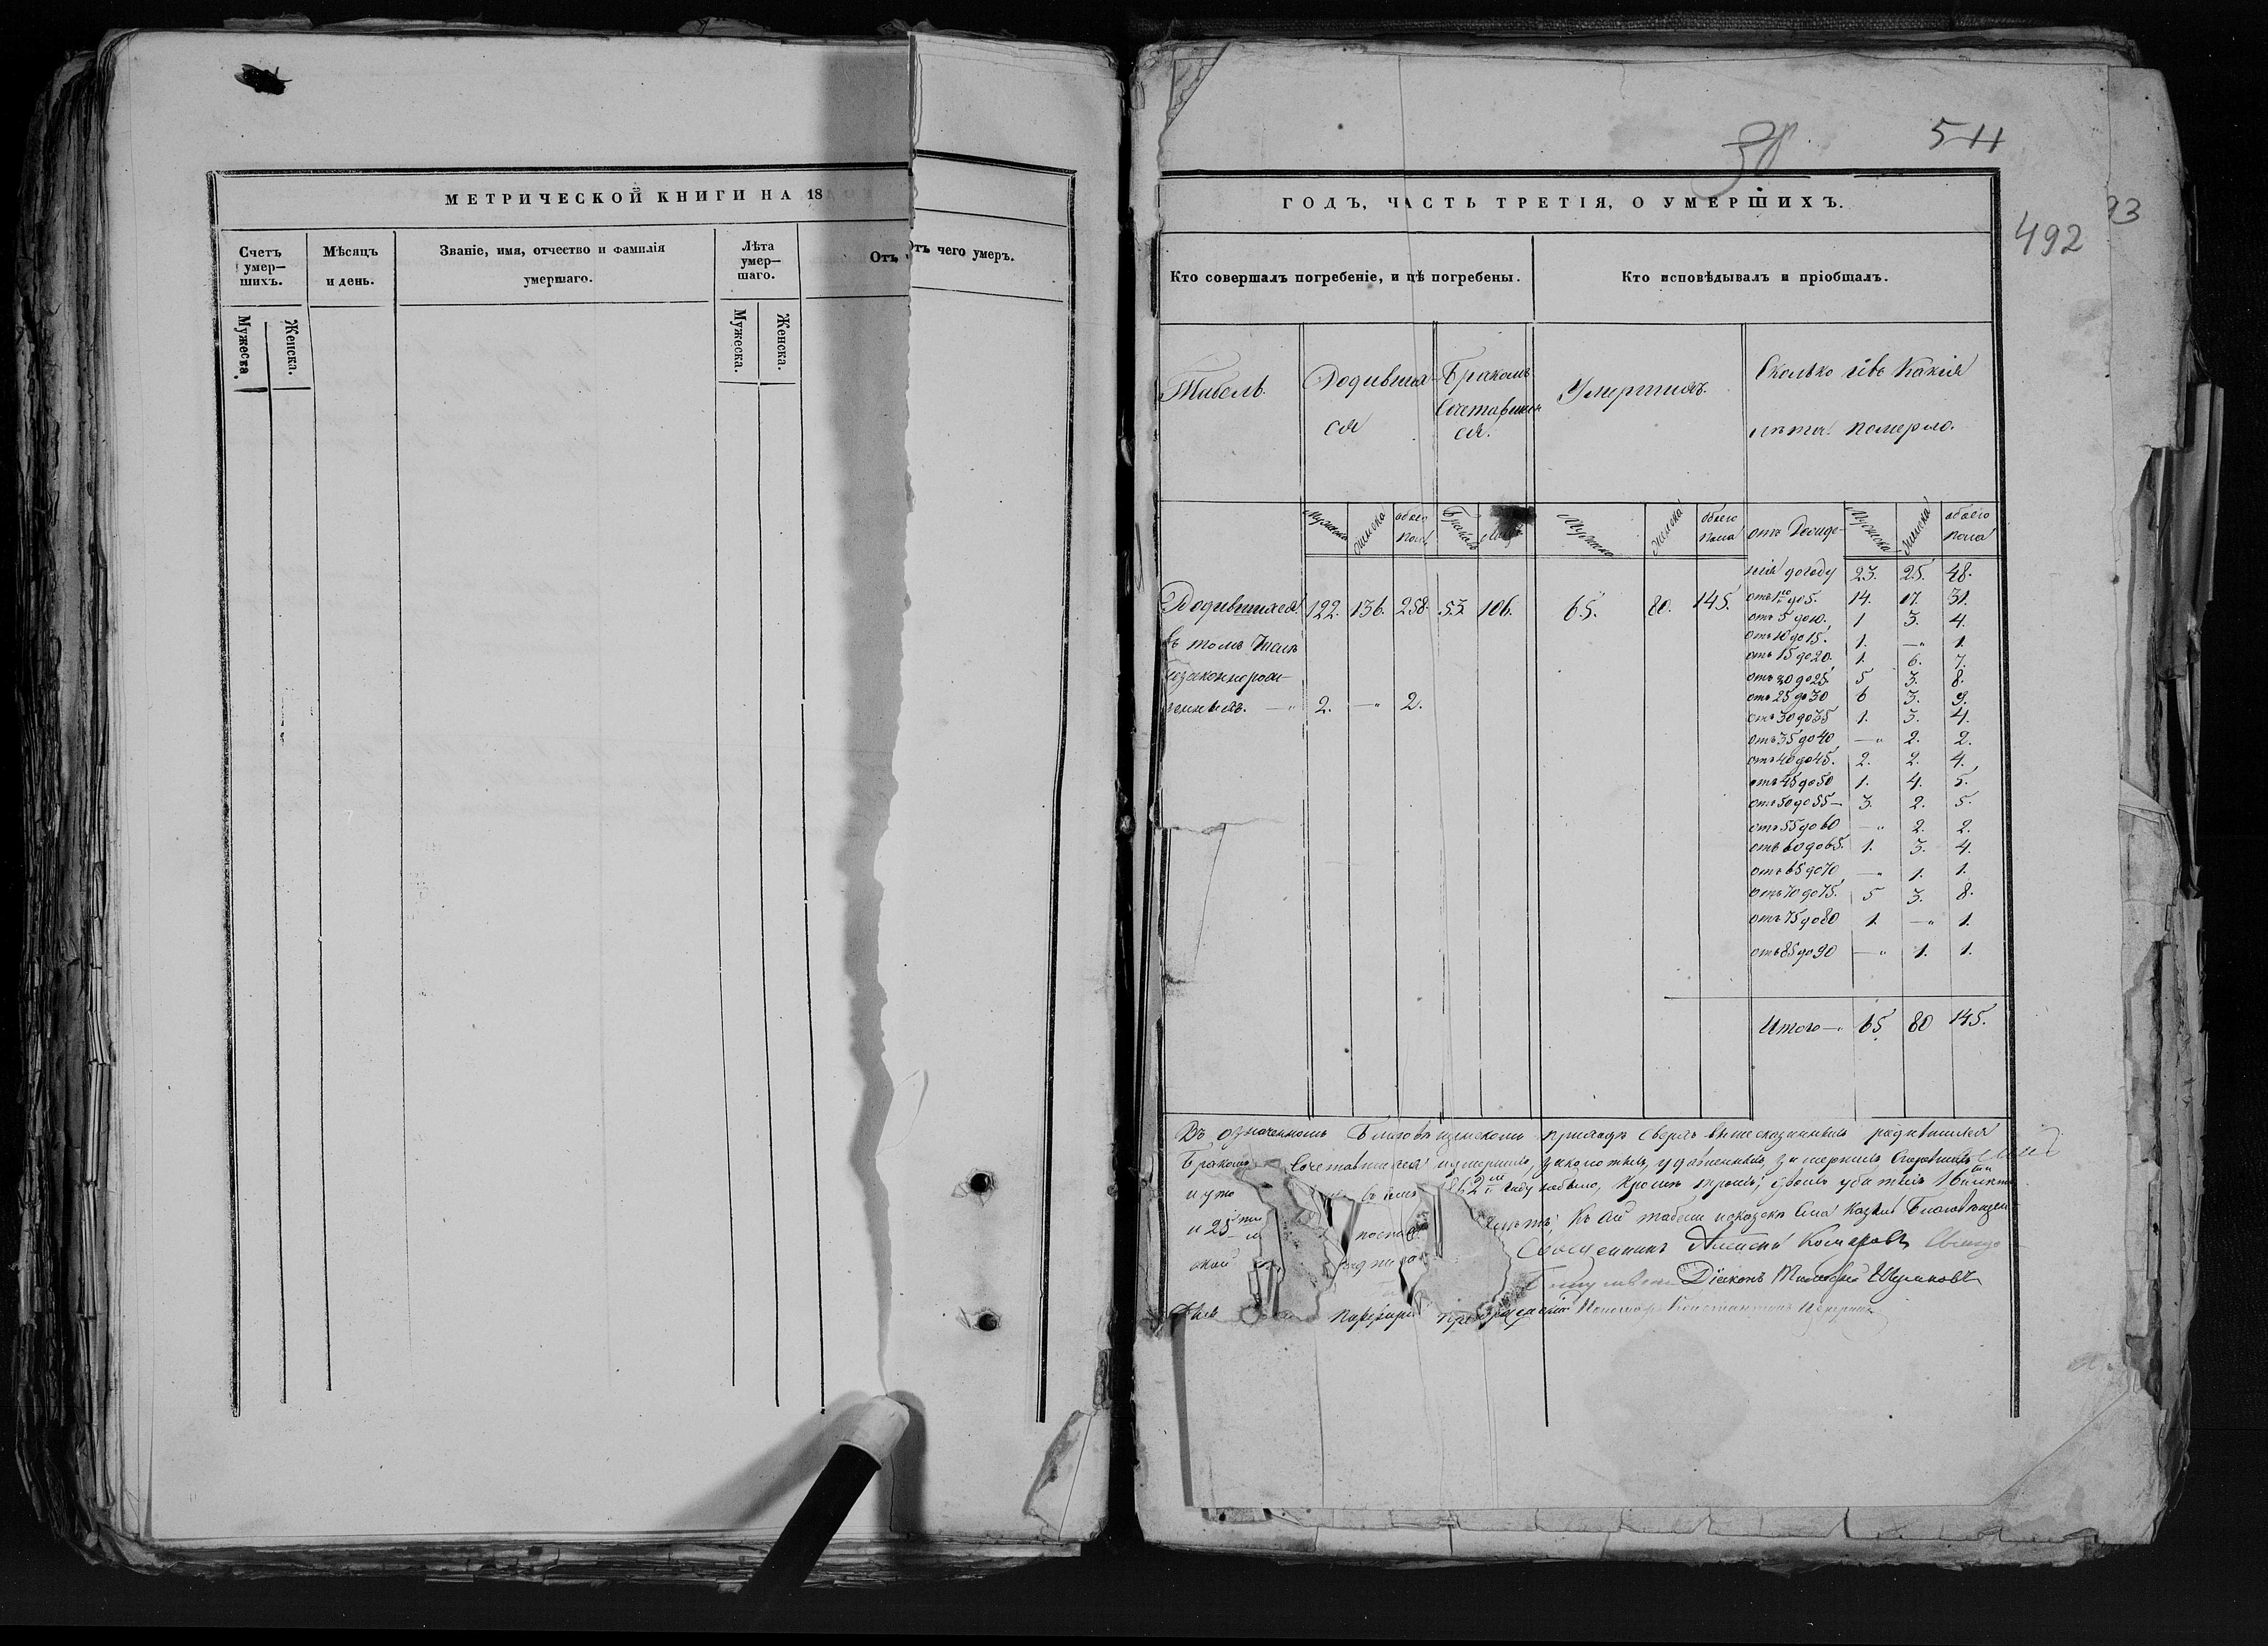 МЕТРИЧЕСКОЙ КНИГИ НА 18
Счетъ умер– шихъ.
Мѣсяцъ и день.
Званіе, имя, отчество и фамилія умершаго.
Лѣта умер– шаго.
Отъ
Отъ чего умеръ.
Мужеска.
Женска.
Мужеска.
Женска.
30
511
492
93
ГОДЪ, ЧАСТЬ ТРЕТІЯ, О УМЕРШИХЪ.
Кто совершалъ погребеніе, и гдѣ погребены.
Кто исповѣдывалъ и пріобщалъ.
Табель.
Родивших
ся
Бракомъ
Сочетавших
ся.
Умершихъ.
Сколько и въ какія
лѣта померло.
Мужеска
женска
обоего пола
Браковъ
Мужеска
женска
обоего пола
отъ Рожде-
Мужеска
женска
обоего пола
нія до году 23. 25. 48.
Родившихся 122. 136. 258. 53. 106. 65. 80. 145.
отъ 1го до 5. 14. 17. 31.
отъ 5 до 10. 1 3. 4.
въ томъ числѣ
отъ 10 до 15. 1. —" 1.
отъ 15 до 20. 1. 6. 7.
незаконнорож-
отъ 20 до 25. 5 3. 8.
отъ 25 до 30 6 3. 9.
денныхъ. —" 2. —" 2.
отъ 30 до 35 1. 3. 4.
отъ 35 до 40 —" 2. 2.
отъ 40 до 45. 2. 2. 4.
отъ 45 до 50 1. 4. 5.
отъ 50 до 55 — 3. 2. 5.
отъ 55 до 60 —" 2. 2.
отъ 60 до 65. 1. 3. 4.
отъ 65 до 70 —" 1. 1.
отъ 70 до 75. 5 3. 8.
отъ 75 до 80 1. —" 1.
отъ 85 до 90 —" 1. 1.
Итого —" 65 80 145.
Въ означенномъ Благовѣщенскомъ приходѣ сверхъ вышесказанныхъ родившихся
Бракомъ Сочетавшихся умершихъ, заколотыхъ, удавленныхъ, замерзшихъ
862 году небыло, кромѣ троихъ, двоихъ убитыхъ 16
и 25 Къ сей табели
Священникъ Алексій Комаровъ
Діаконъ Тимофей Шериковъ
Порфирій Пономарь Константинъ